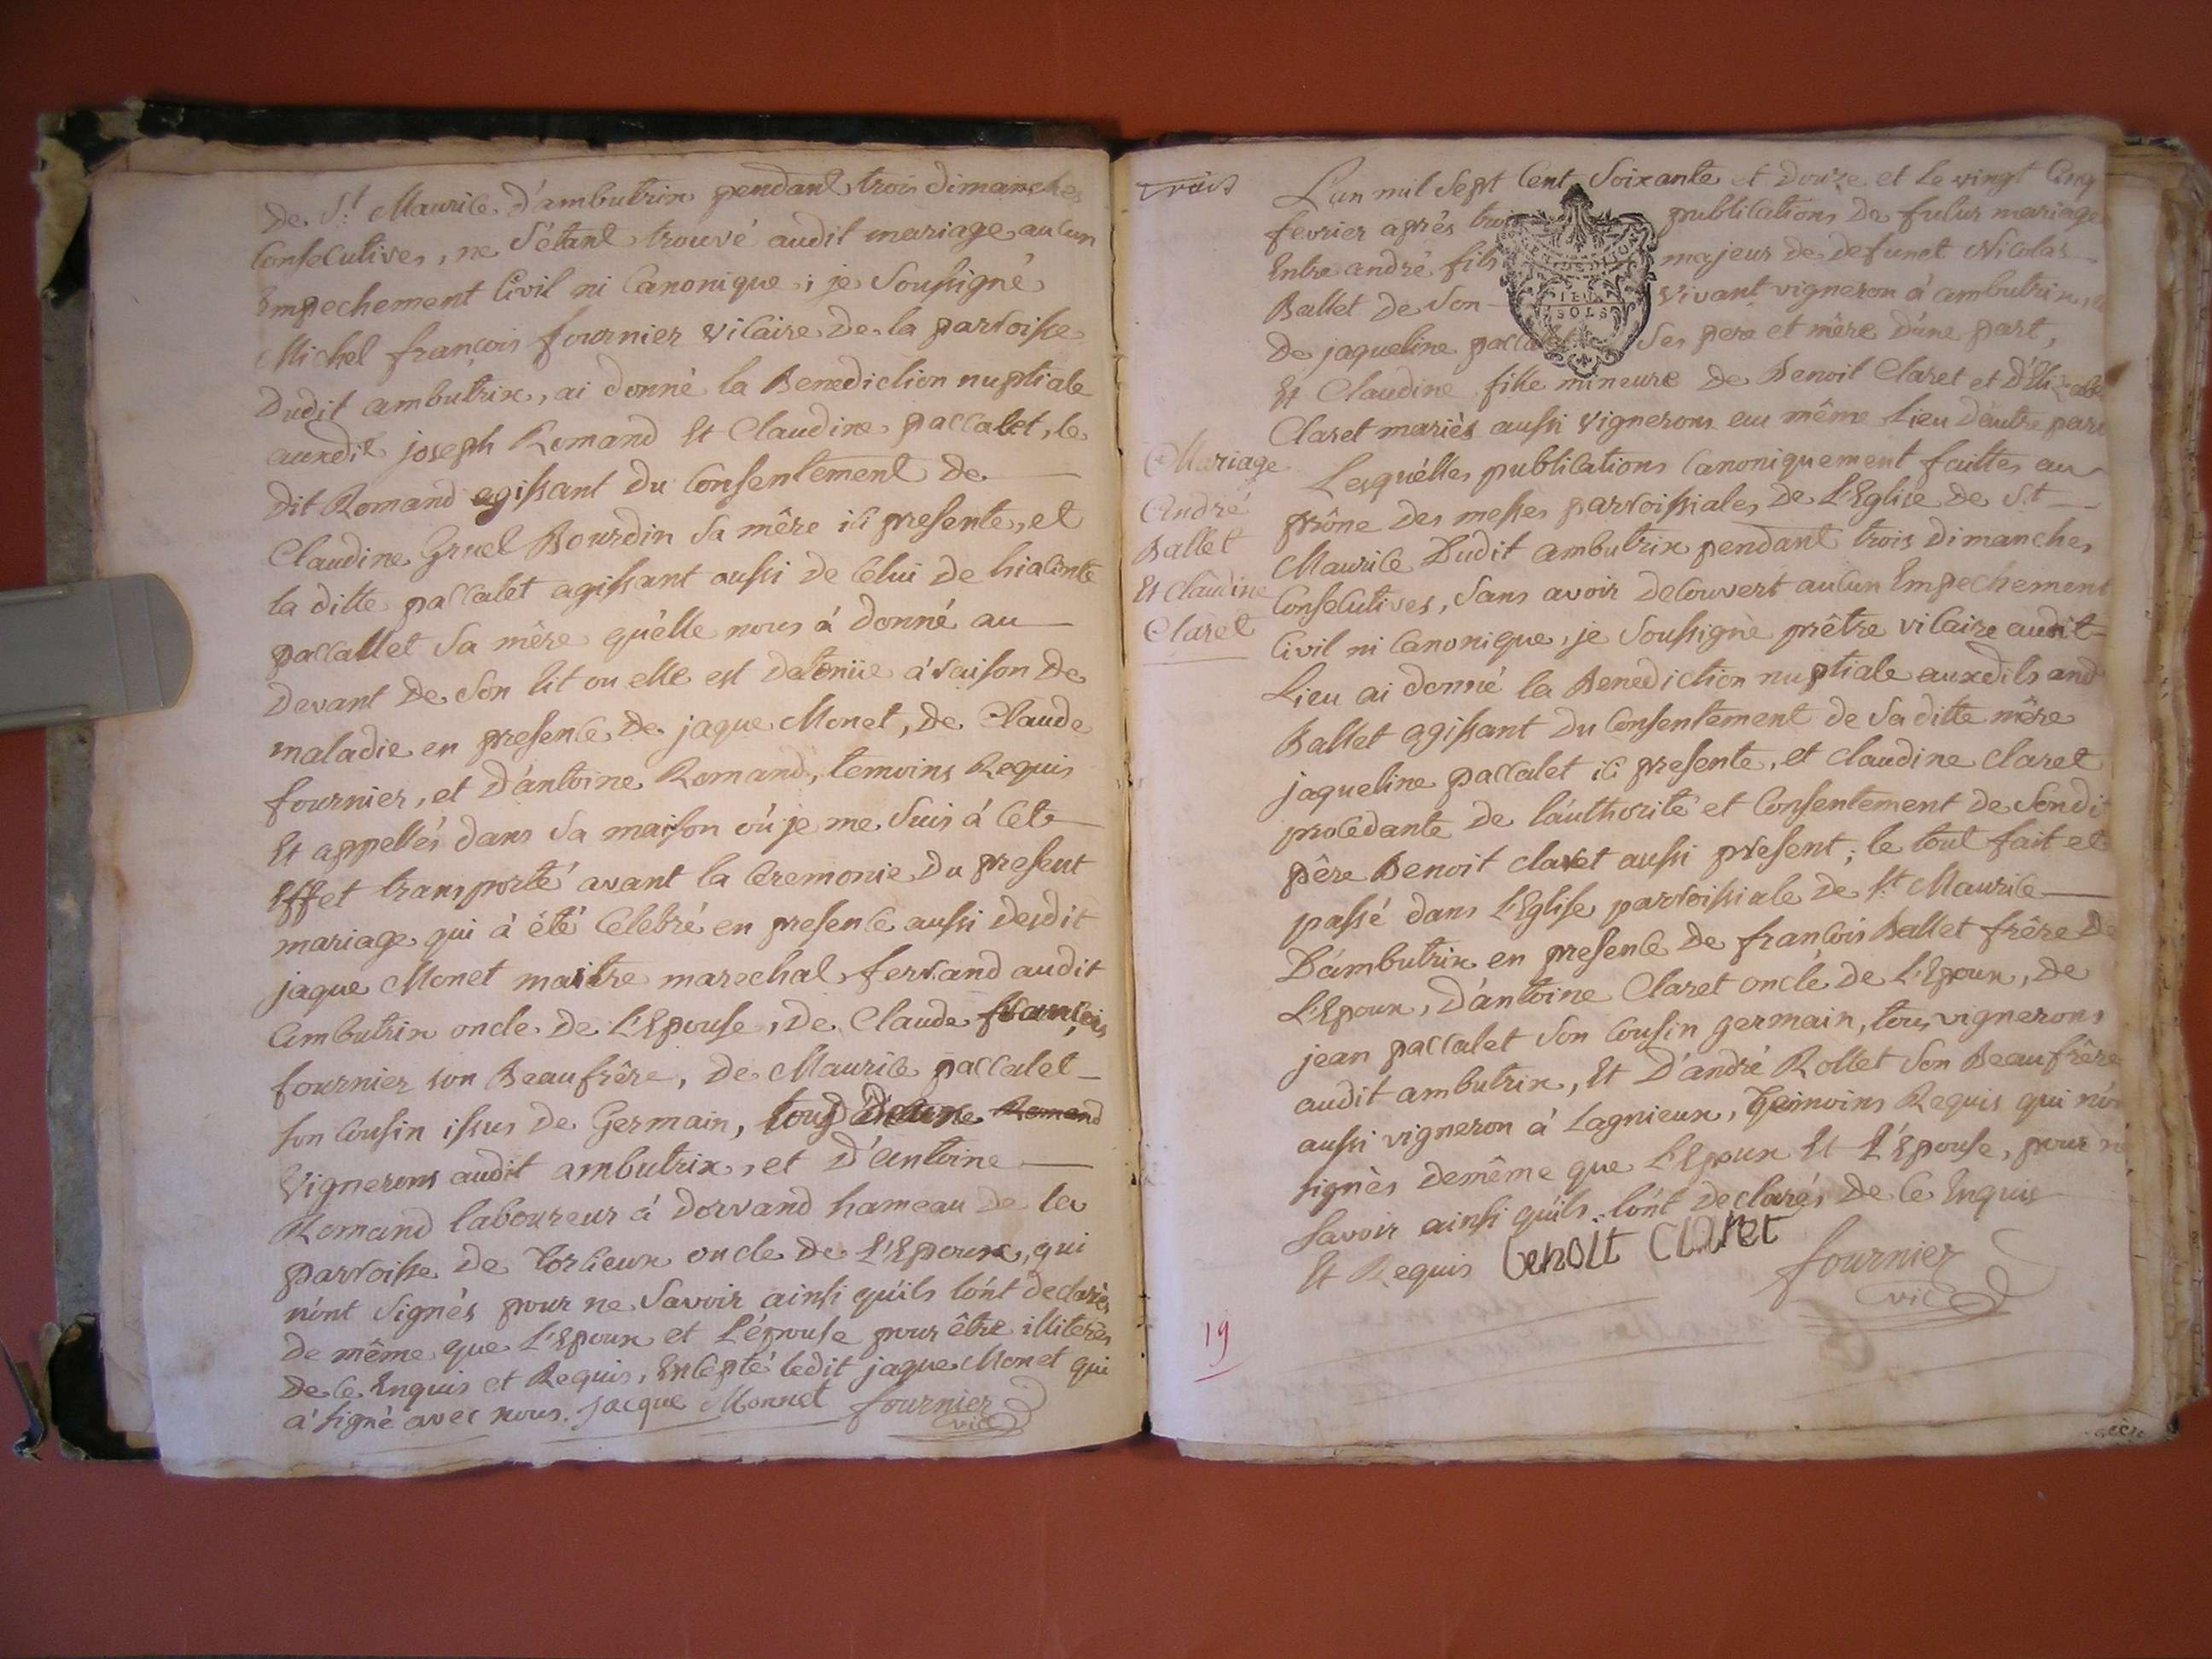 de St Maurice d'ambutrix pendant trois dimanches
Consecutives, ne s'étant trouvé audit mariage aucun
Empechement Civil ni Canonique; je soussigné
Michel françois fournier vicaire de la parroisse
dudit ambutrix, ai donné la Benediction nuptiale
auxdit joseph Romand Et Claudine paccalet, le
dit Romand agissant du Consentement de
Claudine Gruel Bourdin sa mêre ici presente, et
la ditte paccalet agissant aussi de celui de hiacinte
paccallet sa mêre qu'elle nous à donné au
devant de son lit ou elle est detenüe à raison de
maladie en presence de jaque Monet, de Claude
fournier, et d'antoine Romand, temoins Requis
Et appellés dans sa maison où je me suis à cet
Effet transporté avant la Ceremonie du present
mariage qui à été Celebré en presence aussi desdit
jaque Monet maitre marechal ferrand audit
ambutrix oncle de L'Epouse, de Claude françois
fournier son Beaufrêre, de Maurice paccalet
son Cousin issus de Germain, tous Romand
Vignerons audit ambutrix, et D'antoine
Romand laboureur à dorvand hameau de la
parroisse de Torcieux oncle de L'Epoux, qui
n'ont signès pour ne savoir ainsi qu'ils l'ont declarès
de même que L'Epoux et L'épouse pour être illiterès
de ce Enquis et Requis, Excepté ledit jaque Monet qui
à signé avec nous. jacque Monnet fournier
vic
trois
L'an mil sept Cent soixante et douze et le vingt Cinq
fevrier après trois publications de futur mariage
Entre andré fils majeur de defunct Nicolas
Ballet de son vivant vigneron à ambutrix, et
de jaqueline paccalet ses pere et mêre d'une part,
Et Claudine fille mineure de Benoit Claret et d'
Claret mariès aussi vignerons au même Lieu d'autre part
Lesquélles publications Canoniquement faittes au
prône des messes parroissiales de L'Eglise de St
Maurice Dudit ambutrix pendant trois dimanches
Consecutives, sans avoir decouvert aucun Empechement
Civil ni Canonique, je soussigné prêtre vicaire audit
Lieu ai donné la Benediction nuptiale auxdits and
Ballet agissant du Consentement de sa ditte mêre
jaqueline paccalet ici presente, et claudine claret
procédante de l'authorité et Consentement de sondi
pêre Benoit claret aussi present; le tout fait et
passé dans L'Eglise parroissiale de St Maurice
D'ambutrix en presence de francois Ballet frêre de
L'Epoux, d'antoine Claret oncle de L'Epoux, de
jean paccalet son Cousin germain, tous vignerons
audit ambutrix, Et D'andré Rollet son Beaufrêre
aussi vigneron à Lagnieux, temoins Requis qui n'on
signès demême que L'Epoux Et L'Epouse, pour ne
savoir ainsi qu'ils l'ont declarés de ce Enquis
Et Requis benoit Claret
fournier
vic
Mariage
André
Ballet
Et Claudine
Claret
19